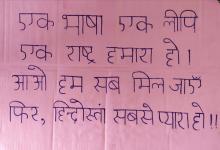 एक भाषा एक लीपि
एक राष्ट्र हमारा हो।
आओ हम सब मिल जाएँ
फिर, हिन्दोस्तां सबसे प्यारा हो!!